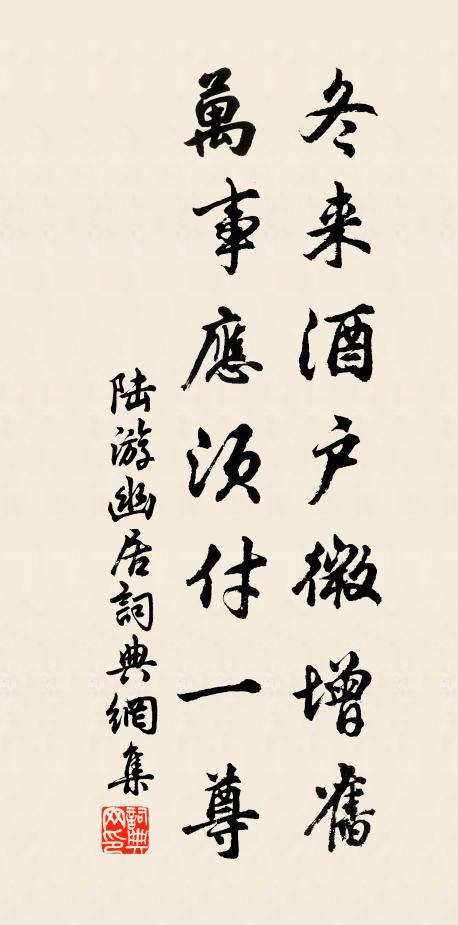 冬来酒户微增舊
萬事應须付一尊
陆游幽居詞典網集
詞典网印